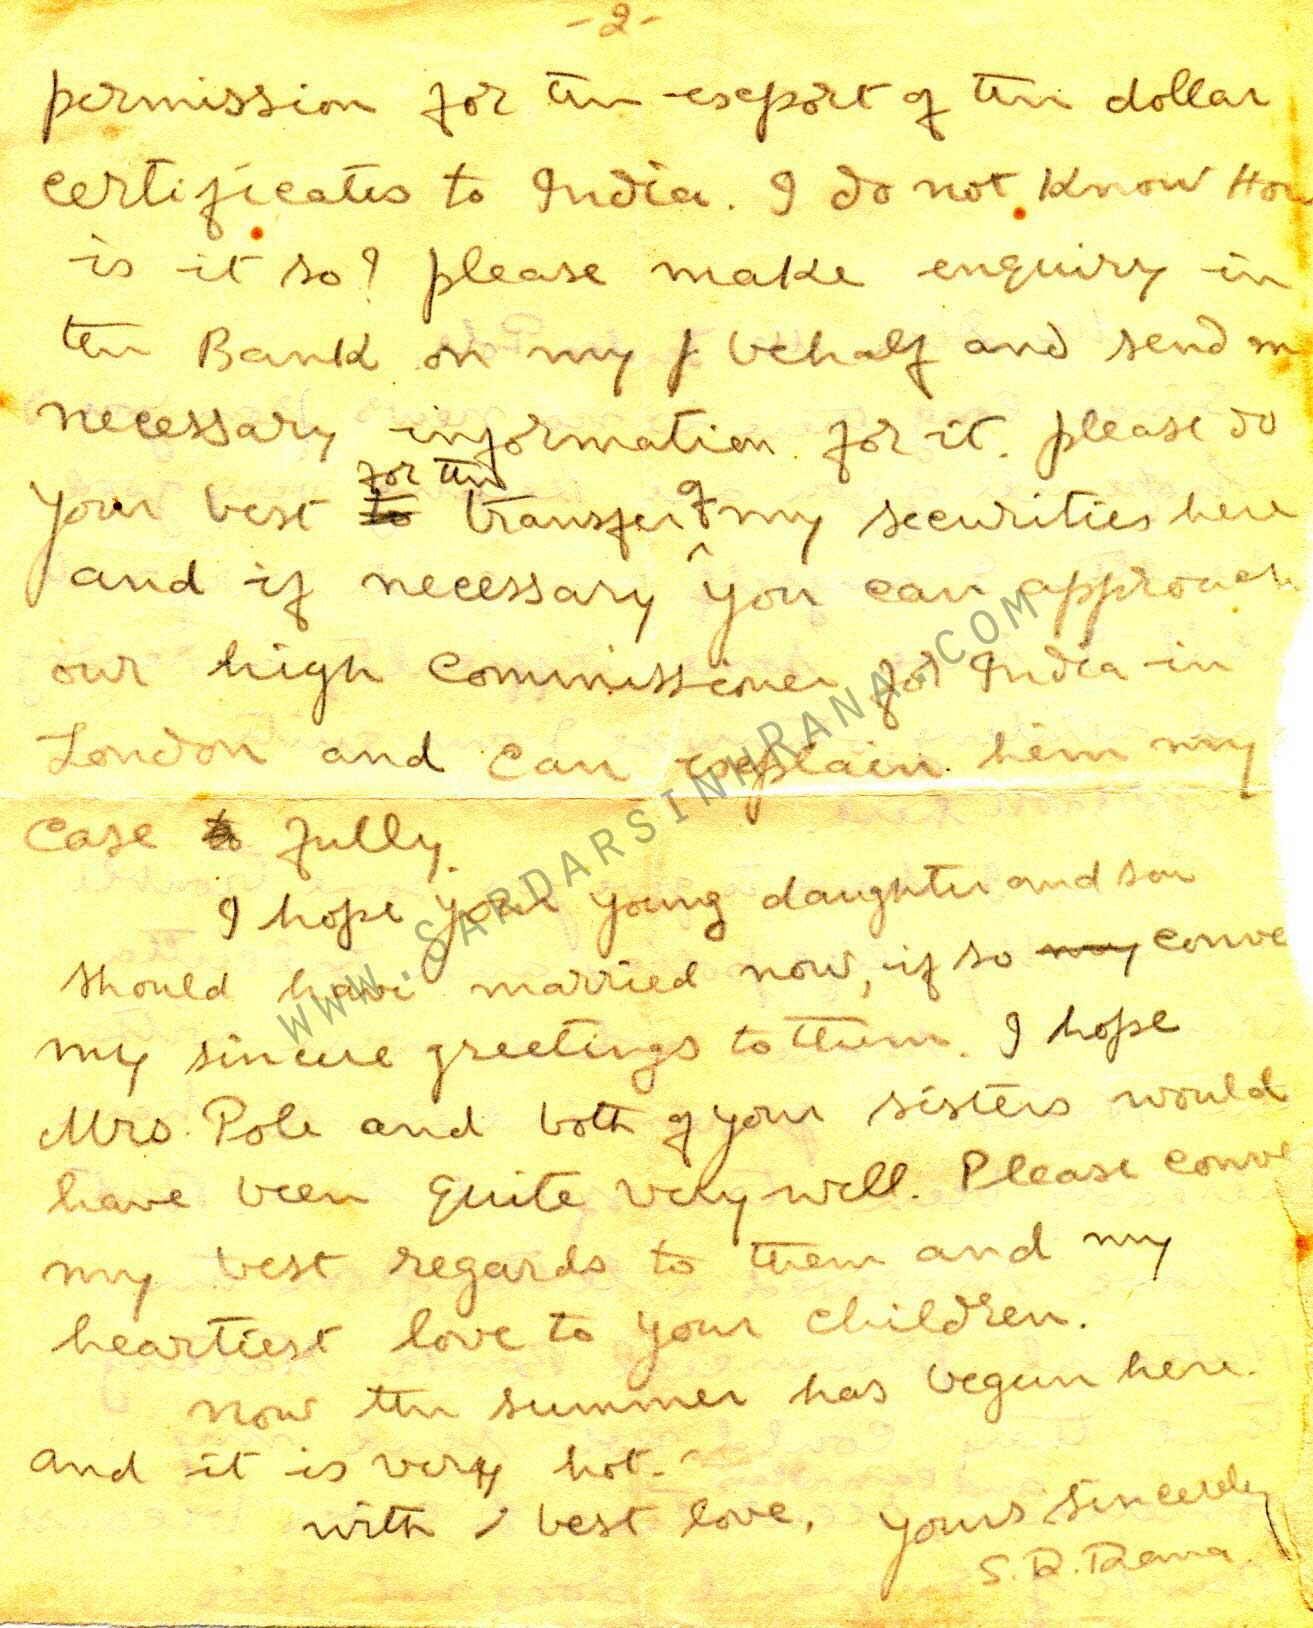 -2-
permission for the export of the dollar
certificates to India. I do not know How
is it so? please make enquiry in
the Bank on my behalf and send m
necessary information for it. please do
your best to for the transfer of my securities here
and if necessary you can approach
our high commissioner for India in
London and can explain him my
case to fully.
I hope your young daughter and son
should have married now, if so may conve
my sincere greetings to them. I hope
Mrs. Pole and both of your sisters would
have been quite very well. Please conve
my best regards to them and my
heartiest love to your children.
Now the summer has begun here.
and it is very hot.
with best love, yours sincerely
S. R. Rana.
WWW.SARDARSINHRANA.COM